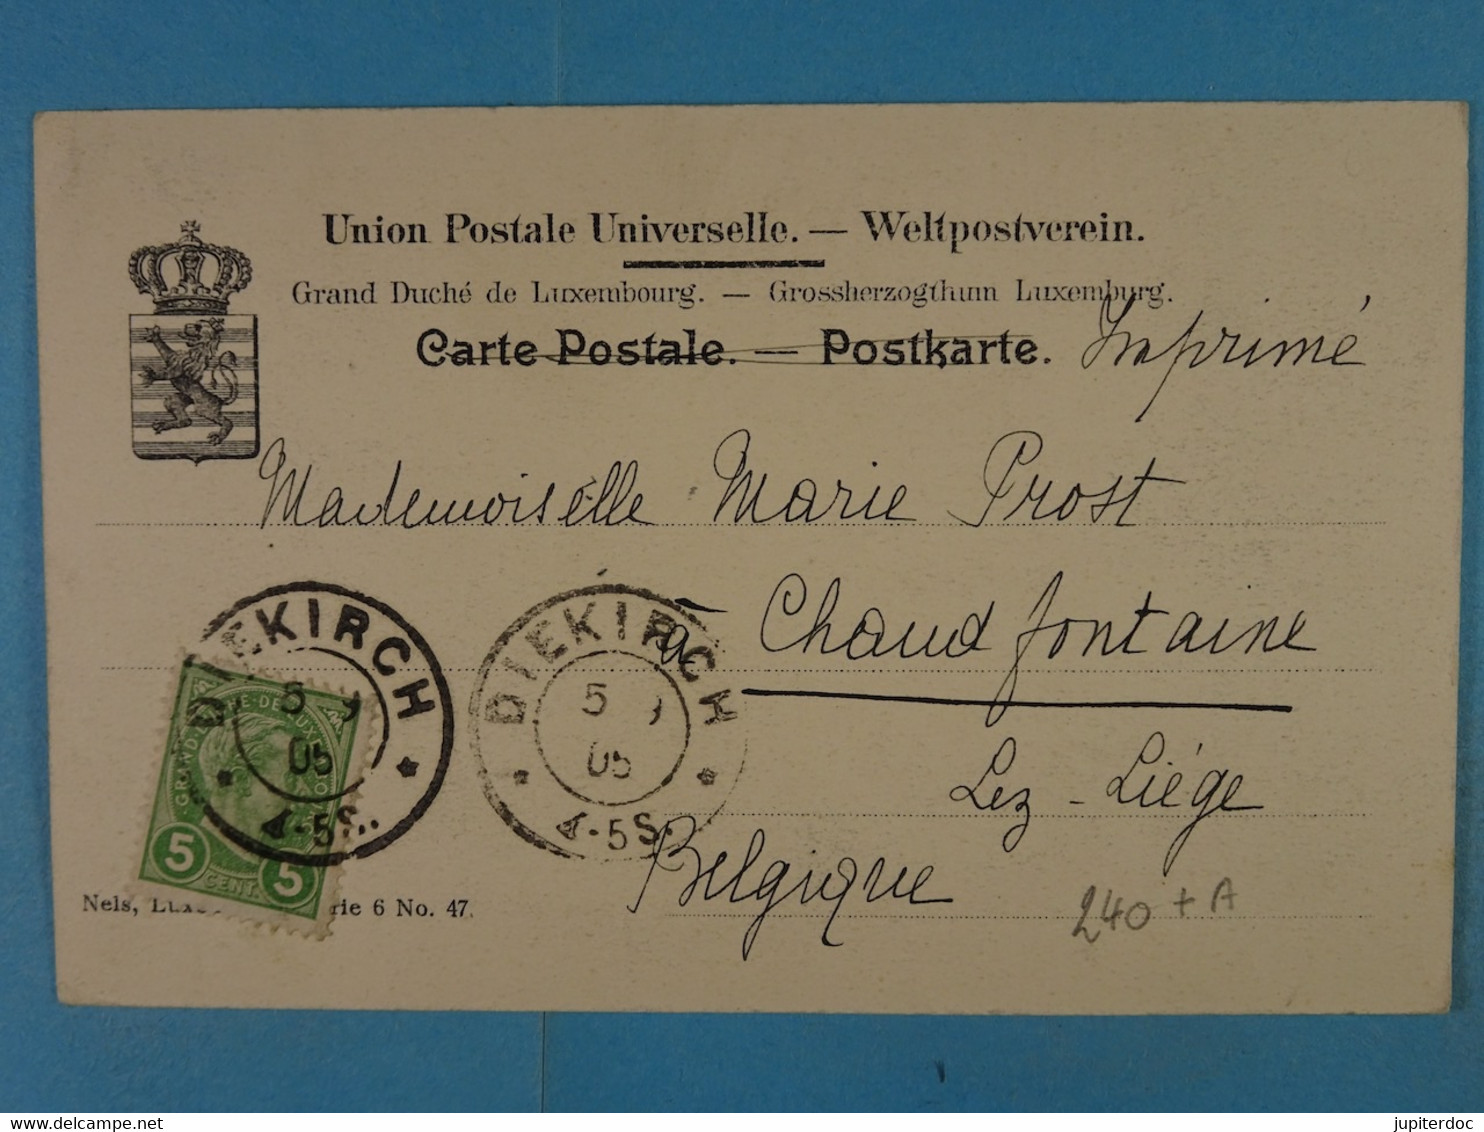 Union Postale Universelle. — Weltpostverein.
Grand Duché de Luxembourg. — Grossherzogthum Luxemburg.
Carte Postale. — Postkarte. Imprimé
Mademoiselle Marie Prost
à Chaudfontaine
Lez-Liége
Belgique
240 + A
DIEKIRCH
5 9
05
4-5S.
DIEKIRCH
5 9
05
4-5S.
GRAND-DUCHE-DE-LUXEMBOURG
5 CENT. 5
Nels, rie 6 No. 47.
jupiterdoc